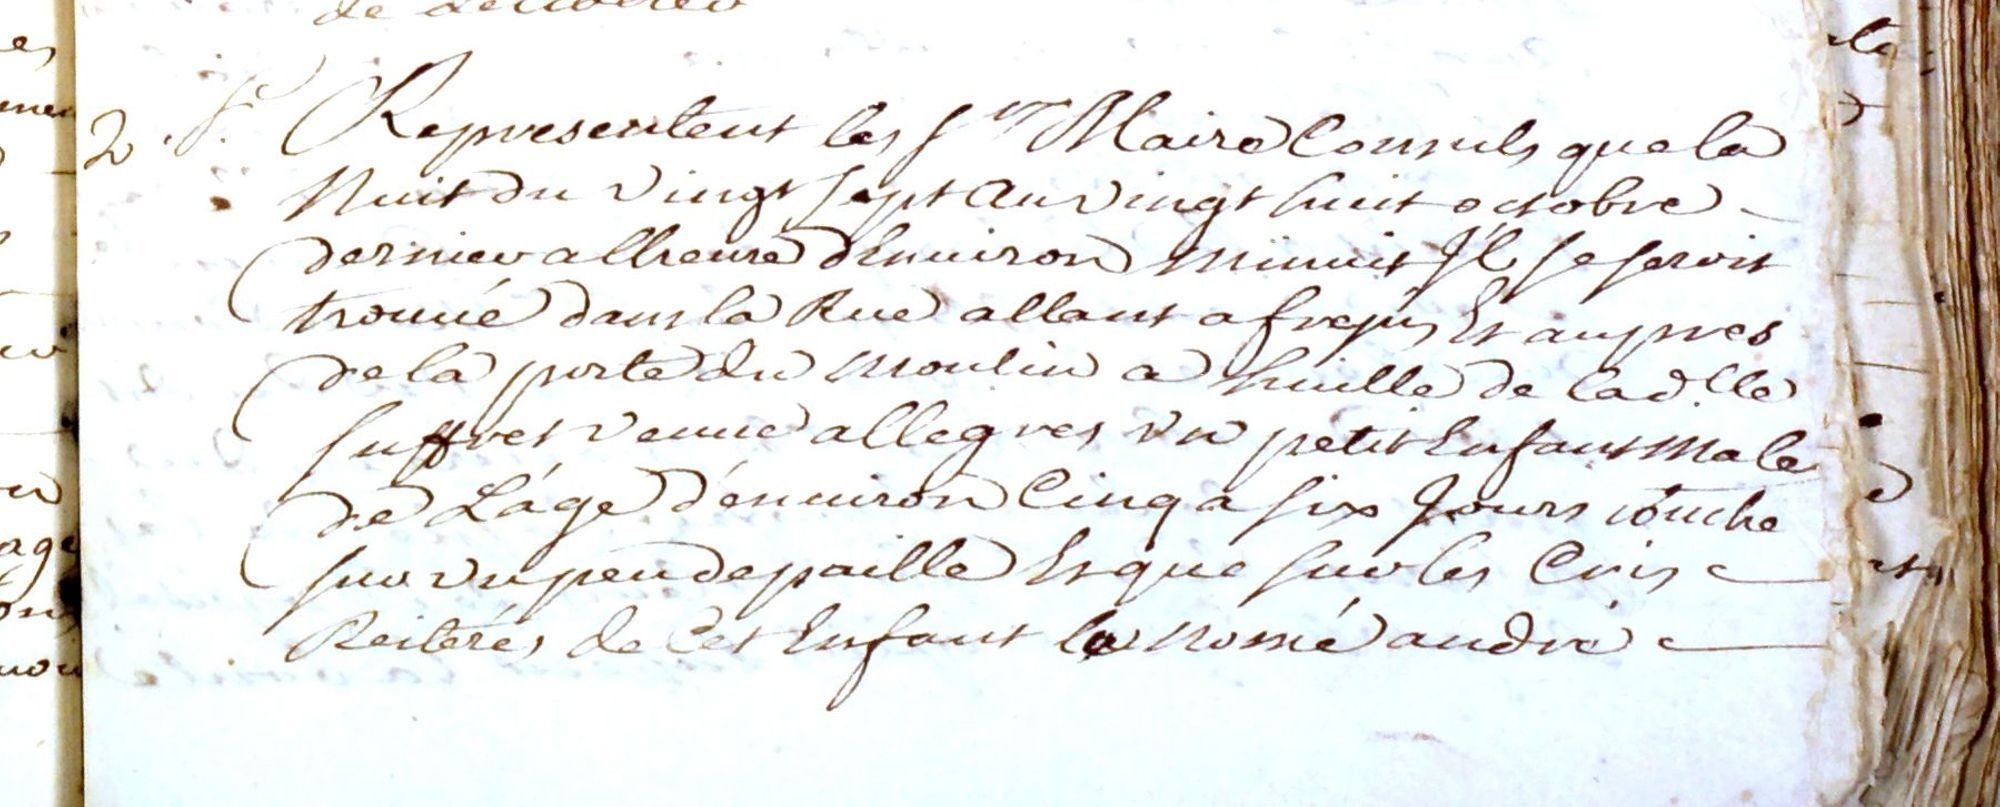 de deliberer
2 Representent les Srs Maire Consuls que la
Nuit du vingt sept au vingt huit octobre
dernier a lheure d'Enuiron minuit Jl se seroit
trouué dans la Rue allant a frejus Et aupres
de la porte du moulin a huille de la dlle
suffret veuue allegres vn petit Enfant Male
de L'áge d'énuiron Cinq a six Jours couche
sur vn peu de paille Et que sur les Cris
Reiterés de Cet Enfant le nomé andré